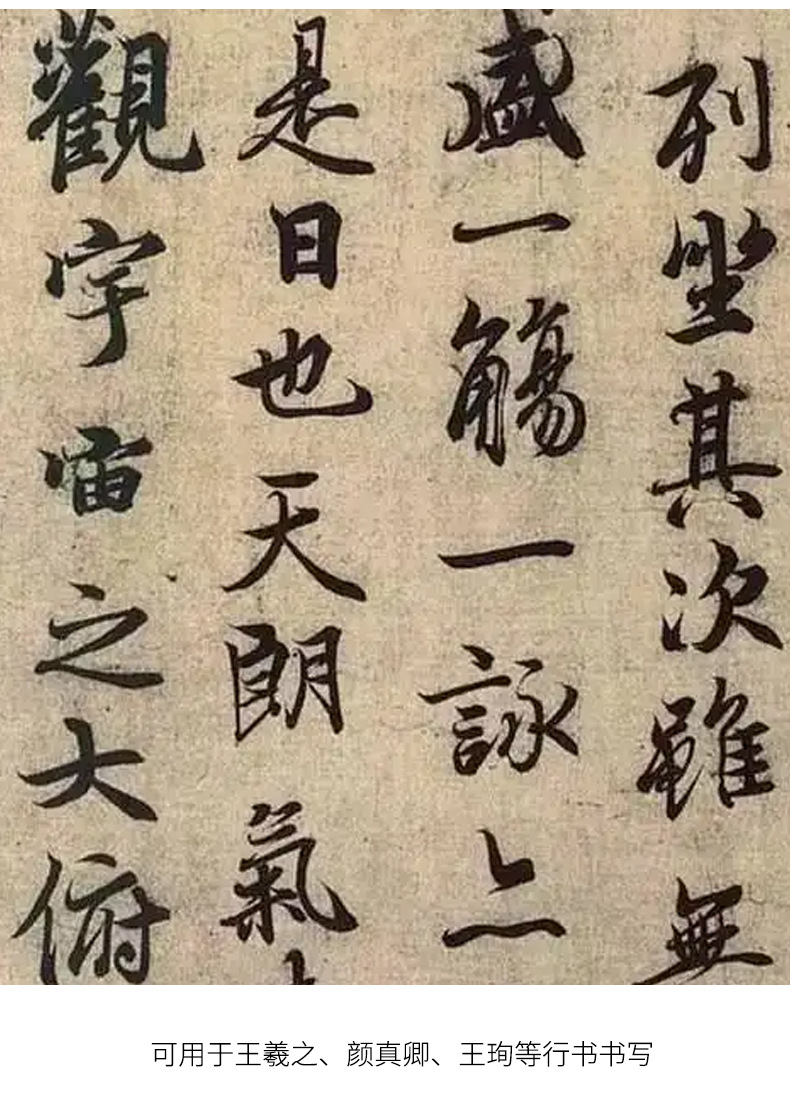 列坐其次雖無
盛一觴一詠亦
是日也天朗氣
觀宇宙之大俯
可用于王羲之、颜真卿、王珣等行书书写